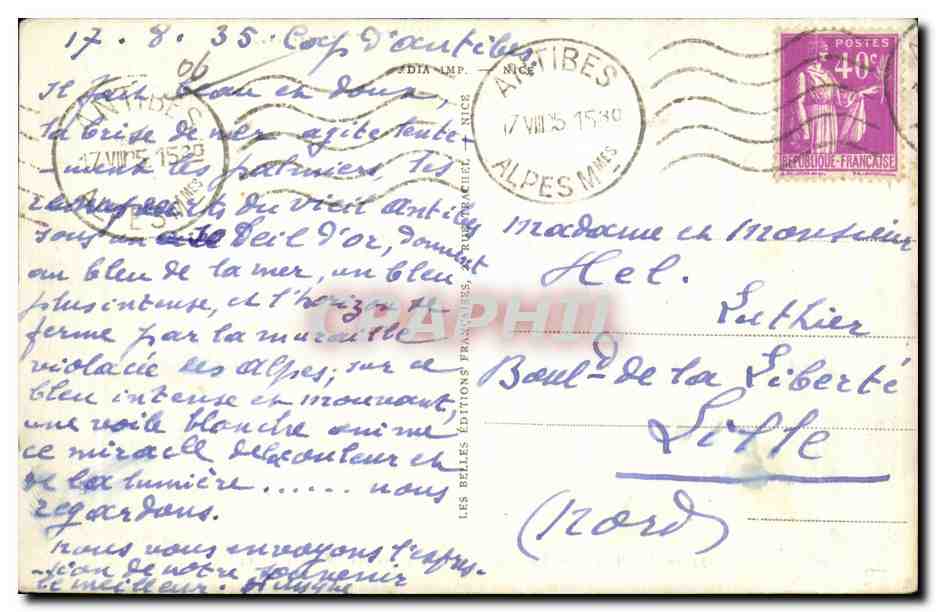 17.8.35. Cap d'antibes
06
Il fait beau en doux,
la brise de mer agite lente-
-ment les palmiers, les
remparts du vieil antibes
sous un soleil d'or, donnent
au bleu de la mer, un bleu
plus intense, et l'horizon se
ferme par la muraille
violacée des alpes; sur ce
bleu intense en mouvant,
une voile blanche anime
ce miracle de la couleur et
de la lumière...... nous
regardons.
nous vous envoyons l'expres-
-sion de notre souvenir
le meilleur.
ANTIBES
17 VIII 35 1530
ALPES Mmes
DIA IMP. — NICE
LES BELLES ÉDITIONS FRANÇAISES, RUE TRACHEL, NICE
ANTIBES
17 VIII 35 1530
ALPES Mmes
POSTES
40c
RÉPUBLIQUE-FRANÇAISE
madame et monsieur
Hel.
Luthier
Boul-d de la Liberté
Lille
(nord)
CPAPHIL